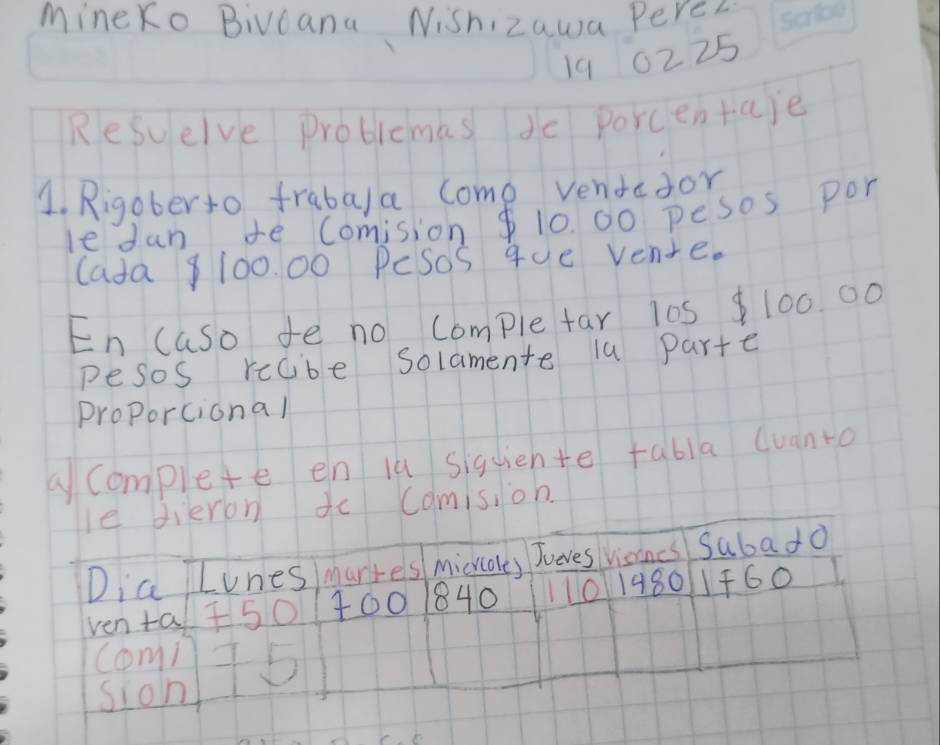 Mineko Biviana Nishizawa Perez
19 02 25
Resuelve Problemas de Porcentaje
1. Rigoberto trabaja Como vendedor
le dan de Comision $ 10.00 Pesos Por
Cada $ 100.00 Pesos que vende.
En Caso de no Completar los $ 100.00
Pesos recibe Solamente la Parte
Proporcional
a) Complete en la Siguiente tabla Cuanto
le dieron de Comision.
Dia Lunes martes miercoles Jueves Viernes Sabado
venta 750 700 840 110 1480 1760
Comi 75
sion